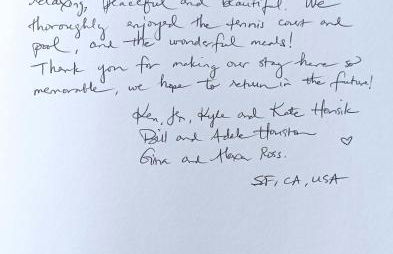 relaxing, peaceful and beautiful. We
thoroughly enjoyed the tennis court and
pool, and the wonderful meals!
Thank you for making our stay here so
memorable, we hope to return in the future!
Ken, Kyle and Kate
Bill and Adele Houston
Gina and Ross.
SF, CA, USA